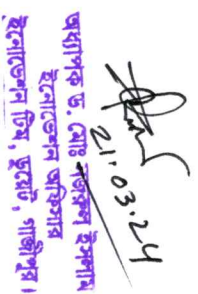 21.03.24
অধ্যাপক ড. মোঃ ইসলাম
ইনোভেশন অফিসার
ইনোভেশন টিম, ডুয়েট, গাজীপুর।